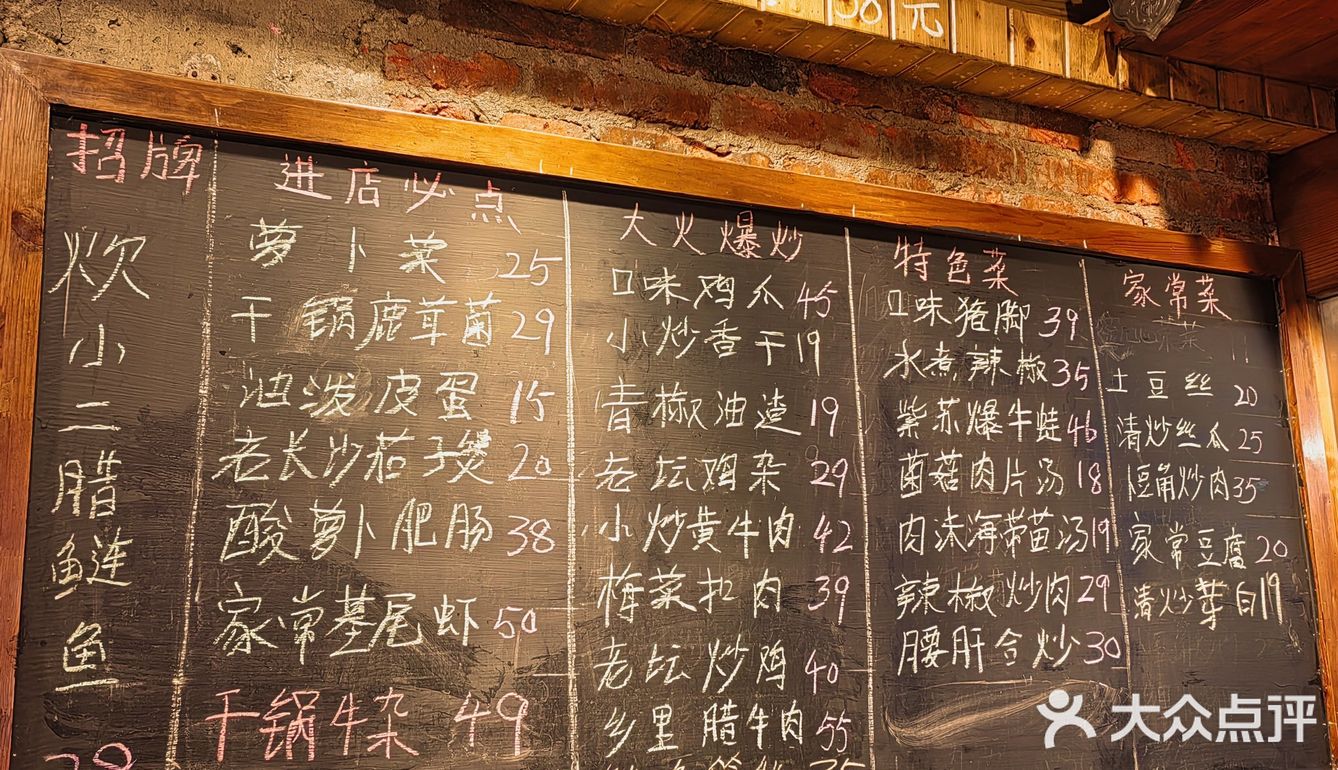 元
招牌
炊小二腊鲢鱼
进店必点
萝卜菜 25
干锅鹿茸菌 29
油泼皮蛋 15
老长沙茄子煲 20
酸萝卜肥肠 38
家常基尾虾 50
干锅牛杂 49
大火爆炒
口味鸡爪 45
小炒香干 19
青椒油渣 19
老坛鸡杂 29
小炒黄牛肉 42
梅菜扣肉 39
老坛炒鸡 40
乡里腊牛肉 55
特色菜
口味猪脚 39
水煮辣椒 35
紫苏爆牛蛙 46
菌菇肉片汤 18
肉沫海带苗汤 19
辣椒炒肉 29
腰肝合炒 30
家常菜
土豆丝 20
清炒丝瓜 25
豆角炒肉 35
家常豆腐 20
清炒芽白 19
大众点评